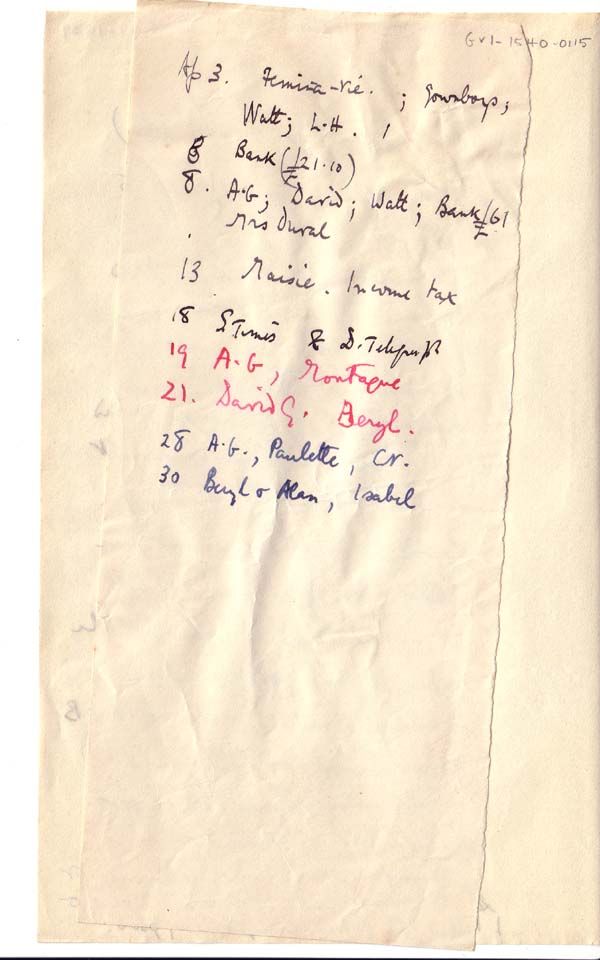 GV1-1540-0115
Ap 3. Femina-Vie. ; Gownboys;
Watt; L.H. ,
5 Bank (£121.10)
8. A.G; David; Watt; Bank/61
£
Mrs Duval
13 Maisie. Income tax
18 S Times & D. Telegraph
19 A-G, Montague
21. David G. Beryl.
28 A.G., Paulette, Cr.
30 Beryl & Alan, Isabel